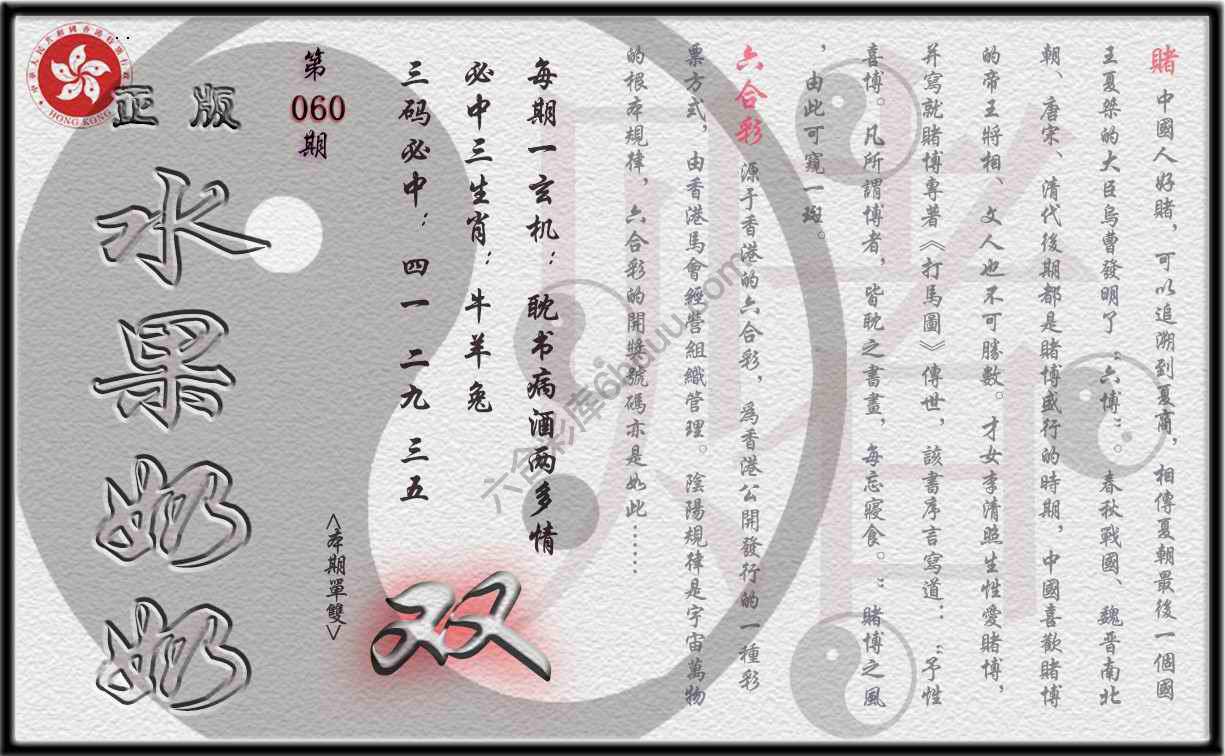 賭 中國人好賭，可以追溯到夏商，相傳夏朝最後一個國
王夏桀的大臣烏曹發明了“六博”。春秋戰國、魏晋南北
朝、唐宋、清代後期都是賭博盛行的時期，中國喜歡賭博
的帝王將相、文人也不可勝數。才女李清照生性愛賭博，
并寫就賭博專著《打馬圖》傳世，該書序言寫道：“予性
喜博。凡所謂博者，皆耽之書畫，每忘寢食。”賭博之風
，由此可窺一斑。
六合彩 源于香港的六合彩，為香港公開發行的一種彩
票方式，由香港馬會經營組織管理。陰陽規律是宇宙萬物
的根本規律，六合彩的開獎號碼亦是如此……
每期一玄机：耽书病酒两多情
必中三生肖：牛羊兔
三码必中：四一 二九 三五
<本期單雙>
双
第
060
期
正版
水果奶奶
中華人民共和國香港特別行政區
HONG KONG
六合彩库6hduu.com
賭